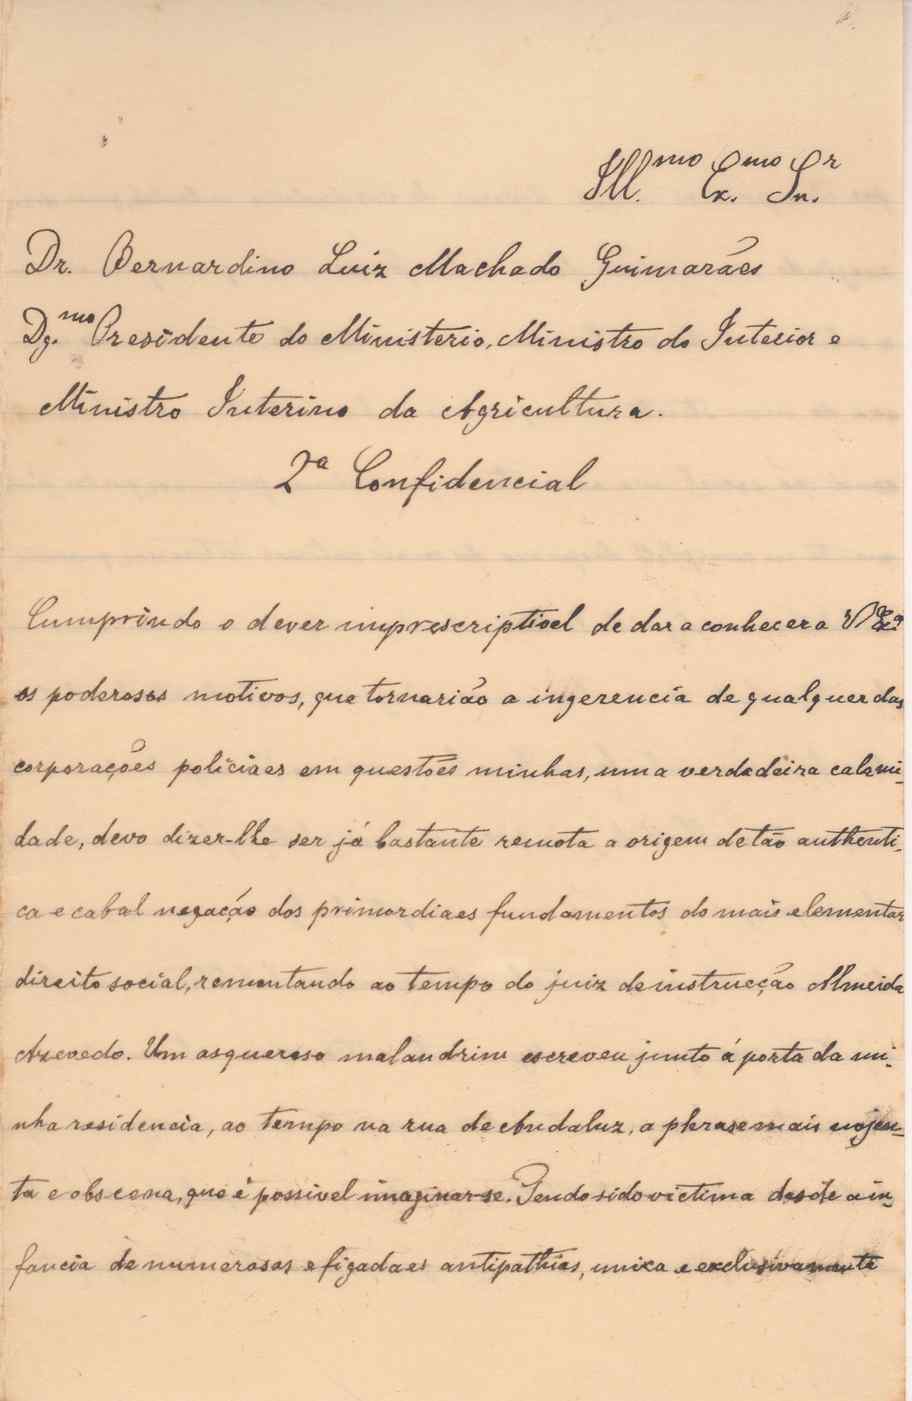 Ill.mo Ex.mo Snr.
Dr. Bernardino Luiz Machado Guimarães
Dg.mo Presidente do Ministerio, Ministro do Interior e
Ministro Interino da Agricultura.
2ª Confidencial
Cumprindo o dever imprescriptivel de dar a conhecer a V. Ex.ª
os poderosos motivos, que tornarião a ingerencia de qualquer das
corporações policiaes em questões minhas, uma verdadeira calami-
dade, devo dizer-lhe ser já bastante remota a origem de tão authenti-
ca e cabal negação dos primordiaes fundamentos do mais elementar
direito social, remontando ao tempo do juiz de instrucção Almeida
Azevedo. Um asqueroso malandrim escreveu junto á porta da mi-
nha residencia, ao tempo na rua de Andaluz, a phrase mais nojen-
ta e obscena, que é possivel imaginar-se. Tendo sido victima desde a in-
fancia de numerosas e figadaes antipathias, unica e exclusivamente